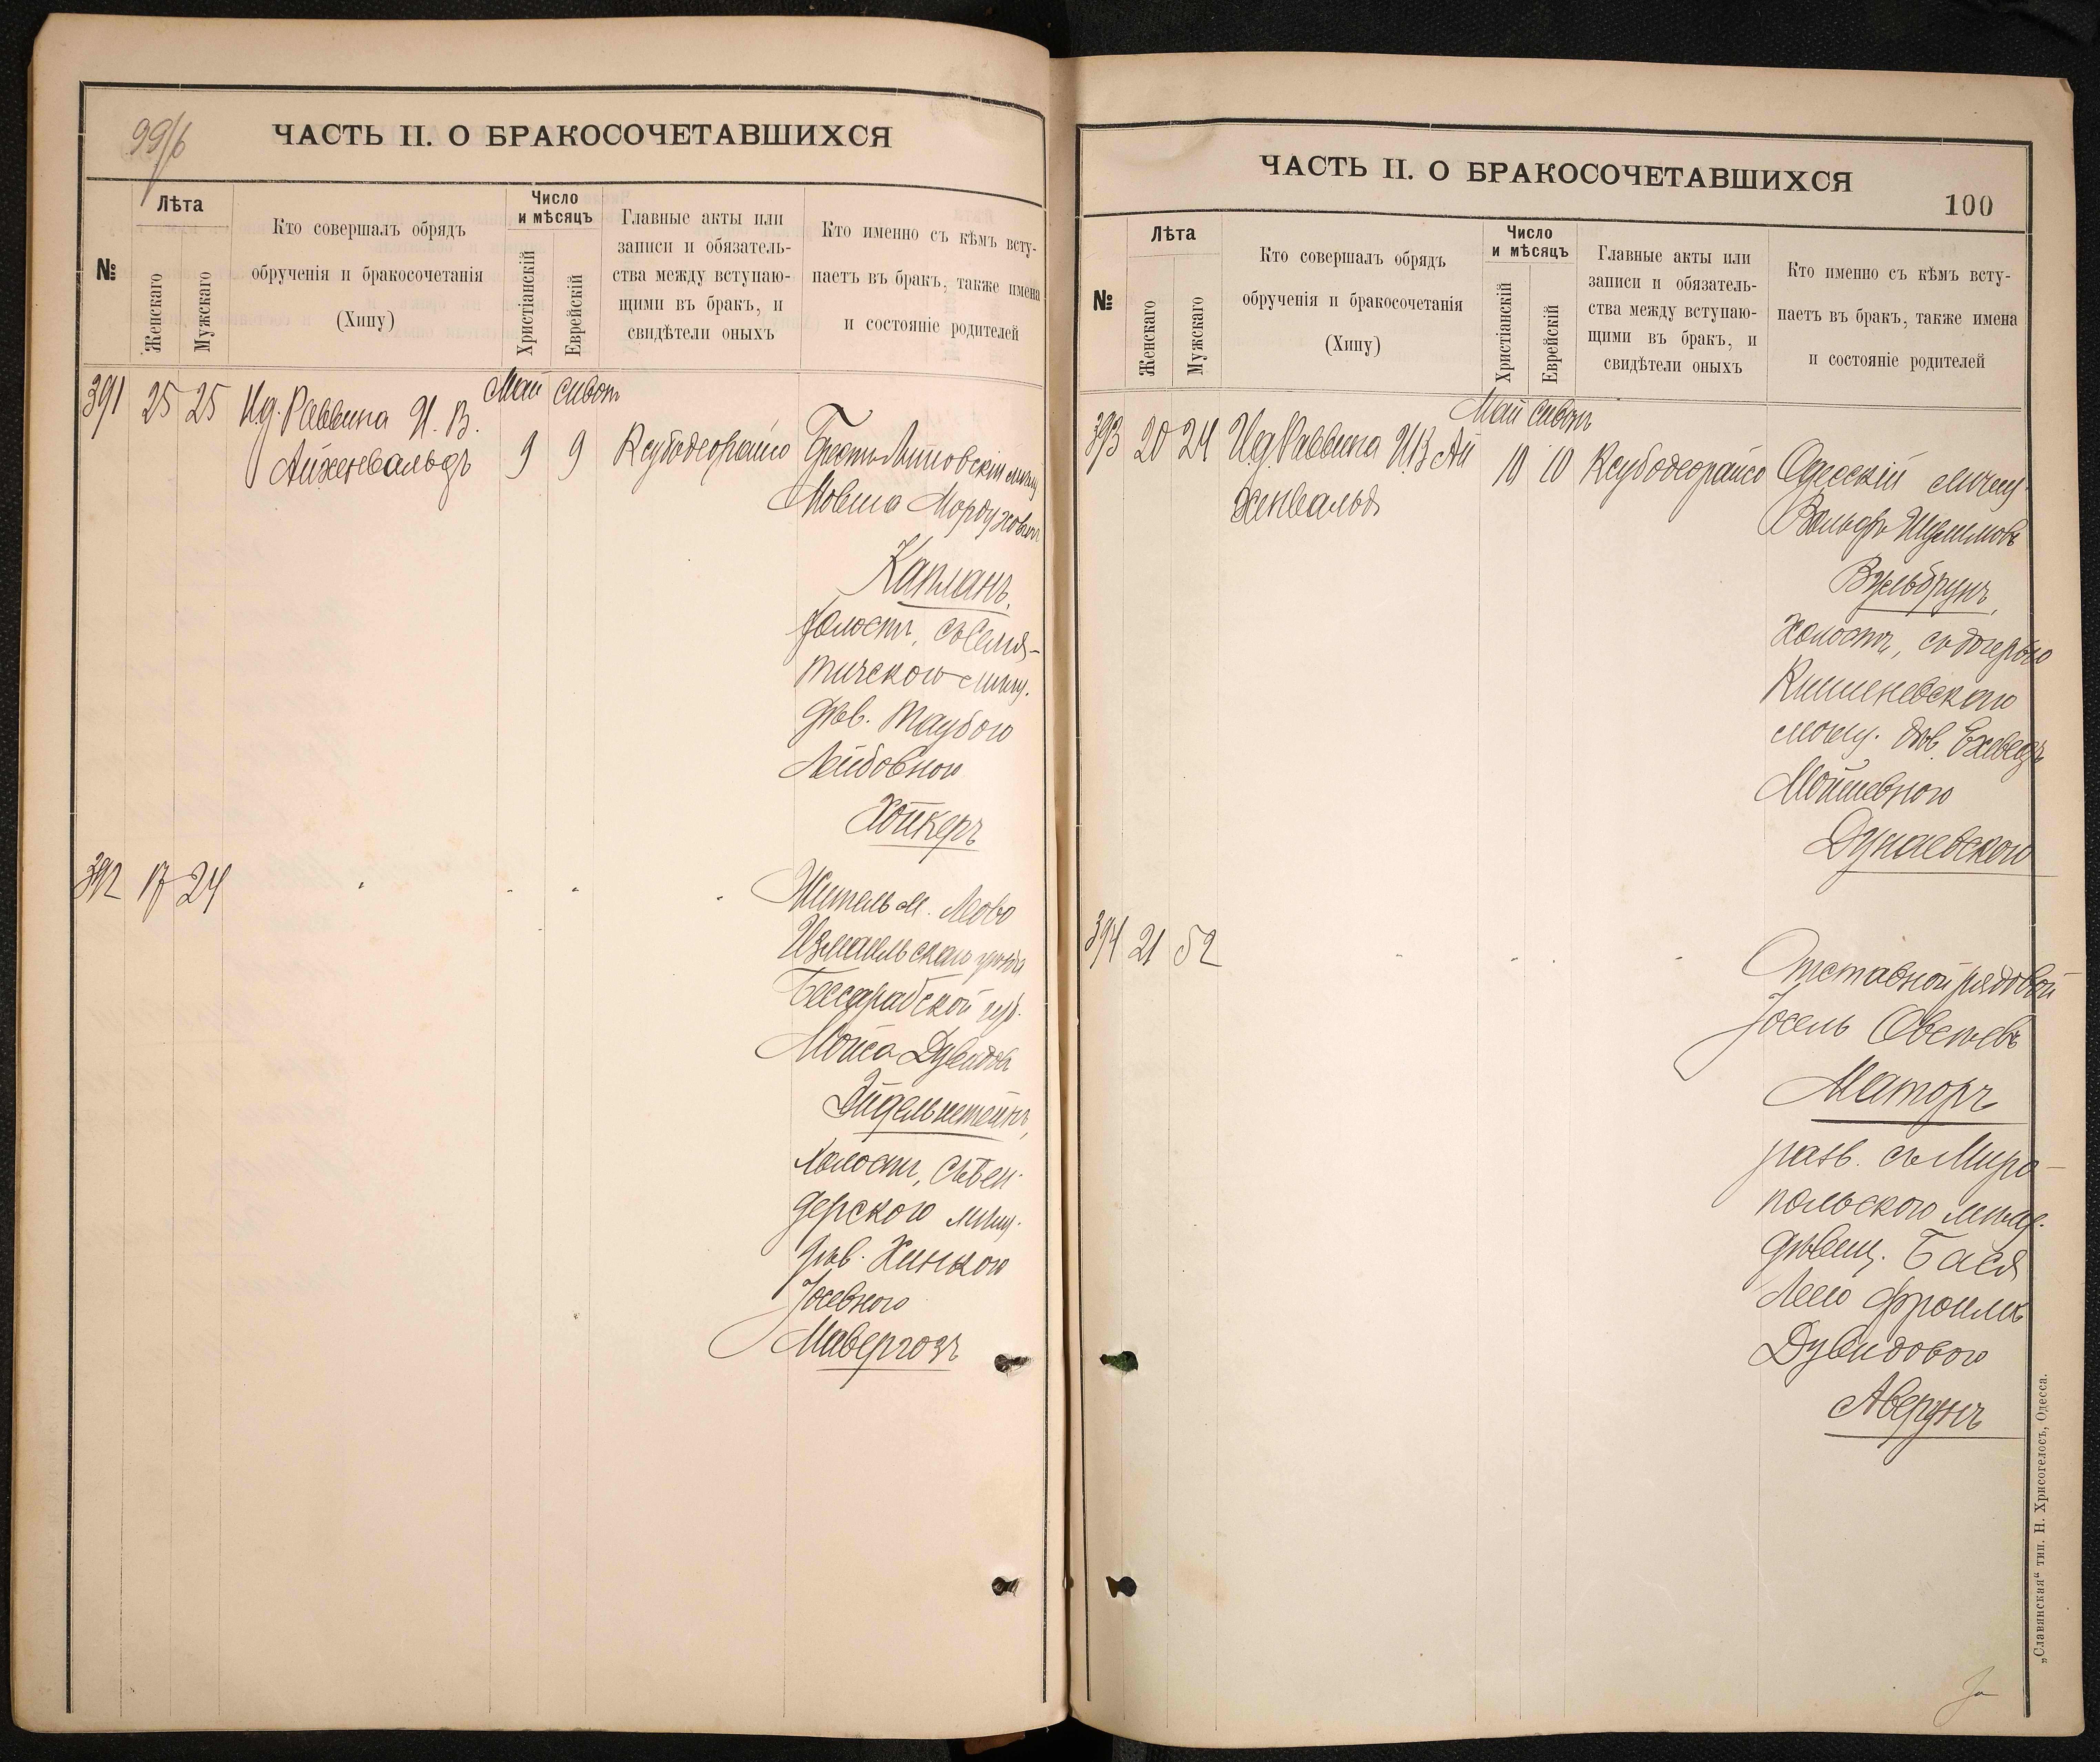 99/б
ЧАСТЬ II. О БРАКОСОЧЕТАВШИХСЯ
№
Лѣта
Женскаго
Мужскаго
Кто совершалъ обрядъ
обрученія и бракосочетанія
(Хипу)
Число
и мѣсяцъ
Христіанскій
Еврейскій
Главные акты или
записи и обязатель-
ства между вступаю-
щими въ бракъ, и
свидѣтели оныхъ
Кто именно съ кѣмъ всту-
паетъ въ бракъ, также имена
и состояніе родителей
Май
391 25 25 И.д. Раввина И. В.
Айхенвальдъ
9 9
Брестъ-Литовскій мѣщ
Мовша Мордухович
Капланъ,
холостъ, съ Семя-
тичскою мѣщ.
дѣв. Таубою
Лейбовною
Хойкеръ
392 17 24
Житель м. Леово
Измаильскаго уѣзда
Бессарабской губ.
Мойса Дувидов
Эйдельштейнъ,
холостъ, съ Бен-
дерскою мѣщ.
дѣв. Хинкою
Іосевною
Мавергозъ
ЧАСТЬ II. О БРАКОСОЧЕТАВШИХСЯ
100
№
Лѣта
Женскаго
Мужскаго
Кто совершалъ обрядъ
обрученія и бракосочетанія
(Хипу)
Число
и мѣсяцъ
Христіанскій
Еврейскій
Главные акты или
записи и обязатель-
ства между вступаю-
щими въ бракъ, и
свидѣтели оныхъ
Кто именно съ кѣмъ всту-
паетъ въ бракъ, также имена
и состояніе родителей
Май Сивонъ
393 20 24 И.д. Раввина И.В Ай
хенвальдъ
10 10
Одесскій мѣщ
Вольфъ
холостъ, съ дочерью
Кишеневскаго
мѣщ. дѣв.
Мойшевною
Дунаевскою
394 21 52
Отставной рядовой
Іосель Овсѣевъ
Маторъ
разв. съ Миро-
польскою мѣщ.
дѣвиц. Бася
Лею Фроимъ
Дувидовою
Аверунъ
„Славянская“ тип. Н. Хрисогелосъ, Одесса.